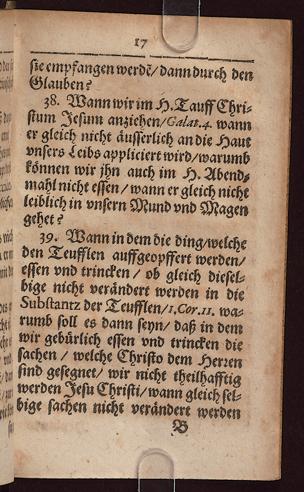 17
sie empfangen werdẽ/dann durch den
Glauben?
38. Wann wir im H. Tauff Chri-
stum Jesum anziehen/Galat. 4. wann
er gleich nicht äusserlich an die Haut
vnsers Leibs appliciert wird/warumb
können wir jhn auch im H. Abend-
mahl nicht essen/wann er gleich nicht
leiblich in vnsern Mund vnd Magen
gehet?
39. Wann in dem die ding/welche
den Teufflen auffgeopffert werden/
essen vnd trincken/ ob gleich diesel-
bige nicht verändert werden in die
Substantz der Teufflen/1. Cor. 11. wa-
rumb soll es dann seyn/ daß in dem
wir gebürlich essen vnd trincken die
sachen/ welche Christo dem Herren
sind gesegnet/ wir nicht theilhafftig
werden Jesu Christi/wann gleich sel-
bige sachen nicht verändert werden
B